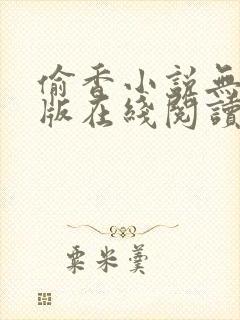 偷香小説無
版在綫閱讀
粟米羹